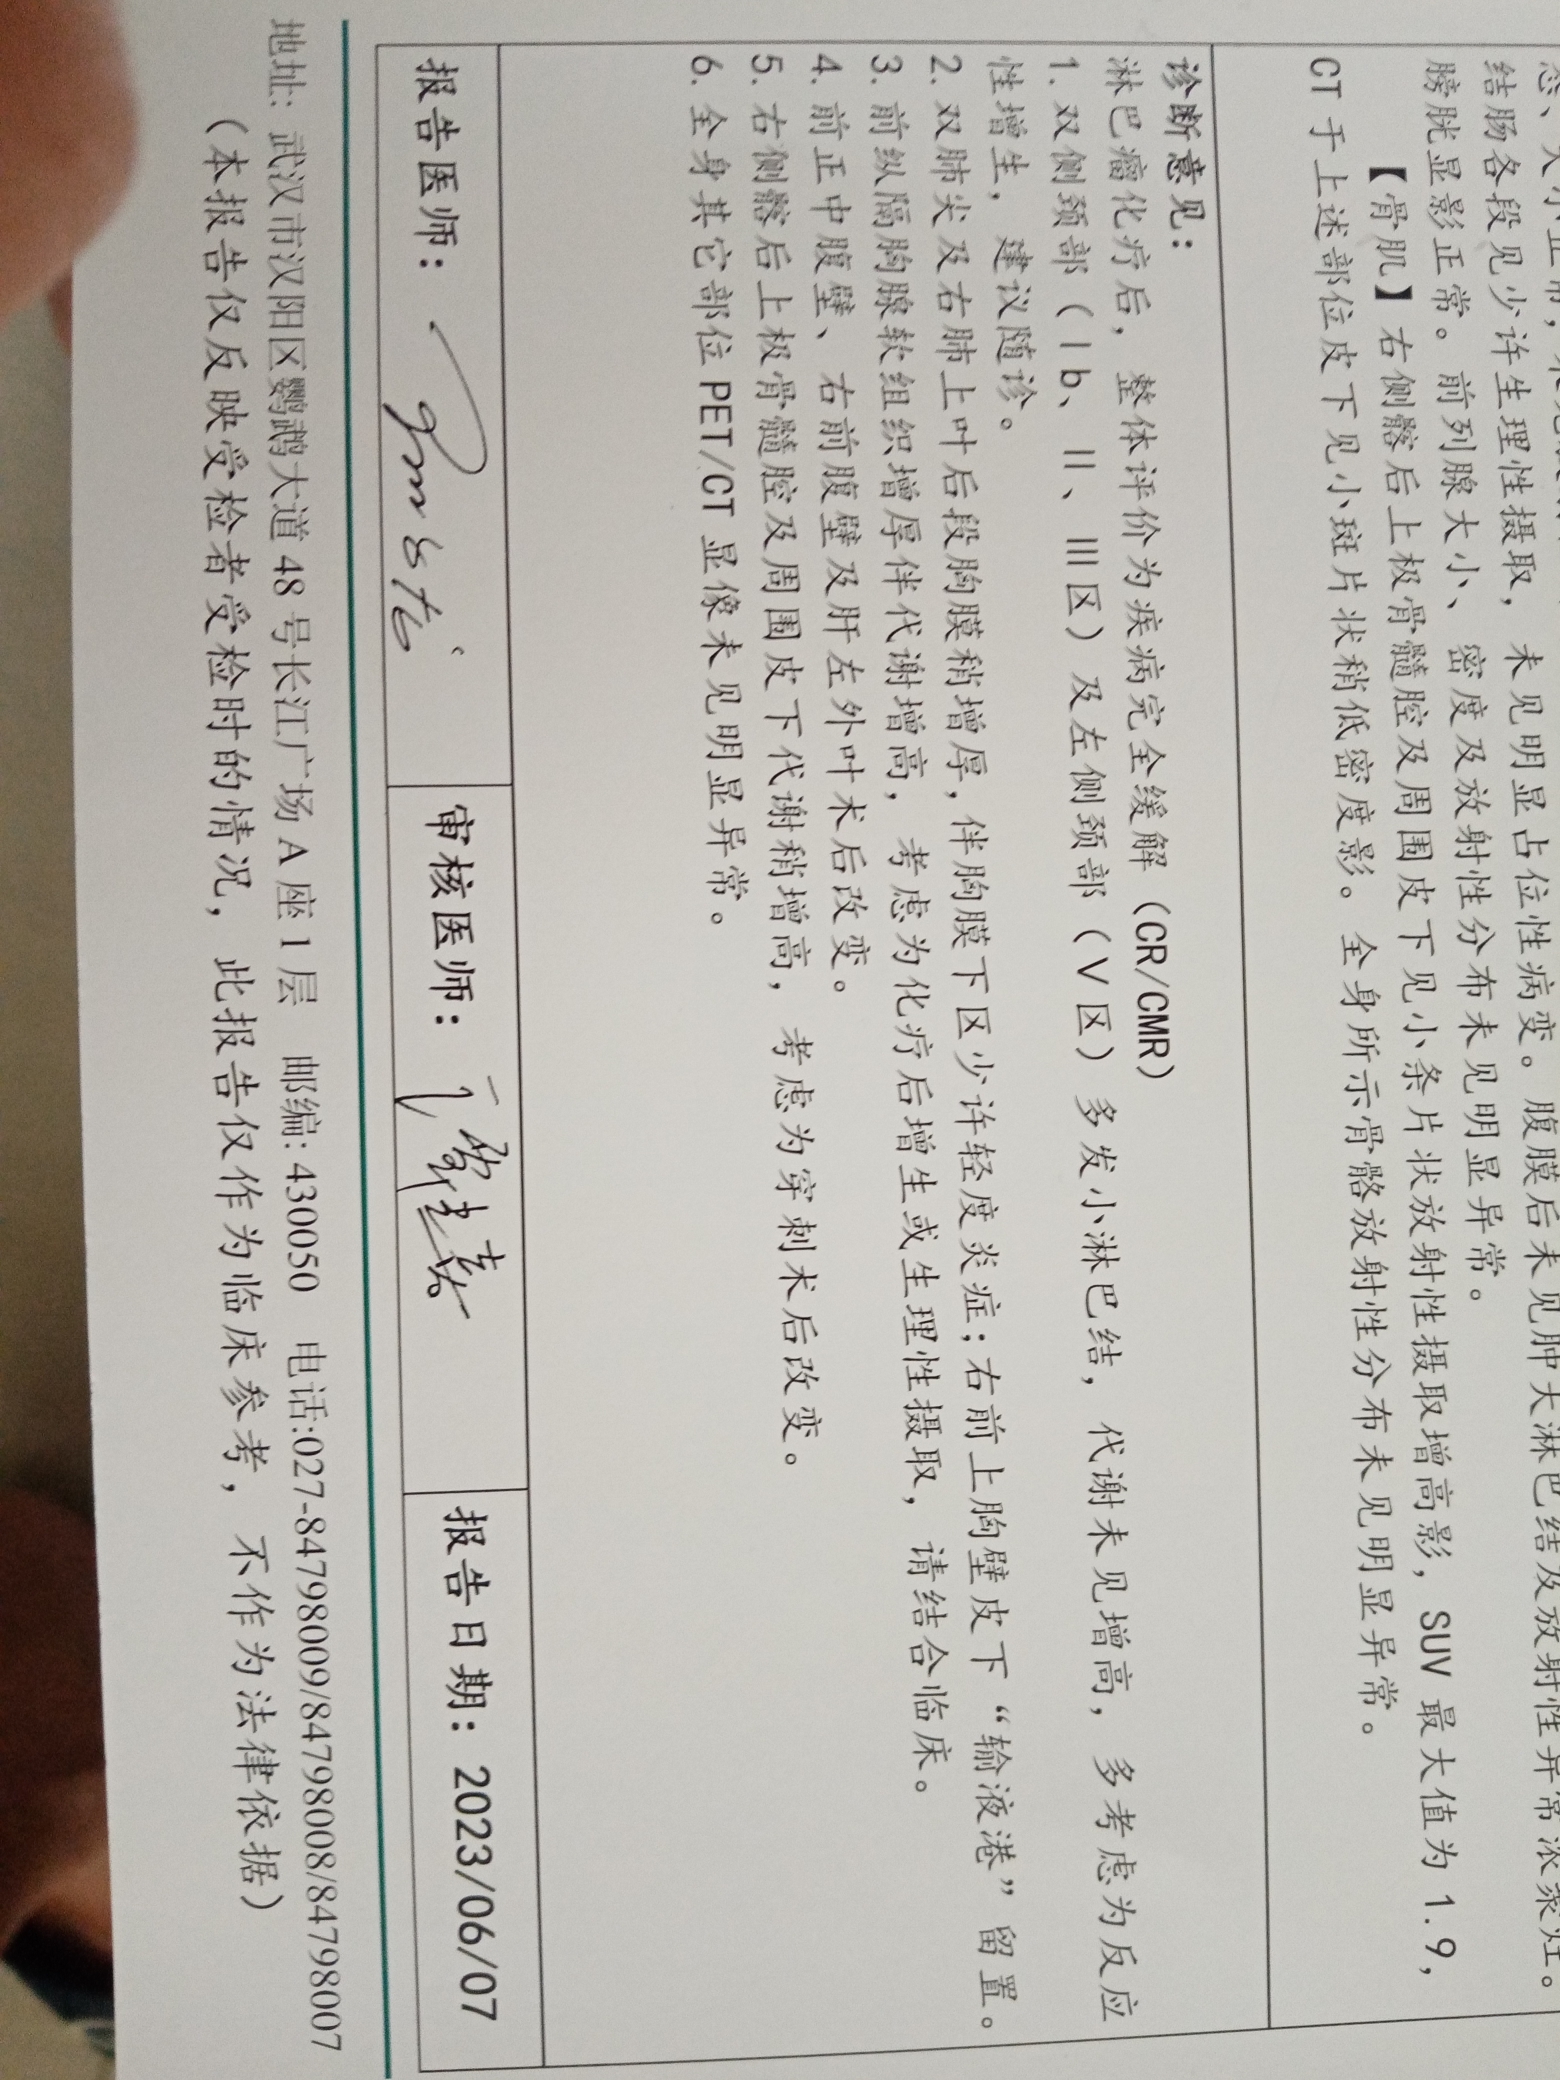 结肠各段见少许生理性摄取，未见明显占位性病变。腹膜后未见肿大淋巴结及放射性异常浓聚灶。
膀胱显影正常。前列腺大小、密度及放射性分布未见明显异常。
【骨肌】右侧髂后上极骨髓腔及周围皮下见小条片状放射性摄取增高影，SUV 最大值为 1.9，
CT 于上述部位皮下见小斑片状稍低密度影。全身所示骨骼放射性分布未见明显异常。
诊断意见：
淋巴瘤化疗后，整体评价为疾病完全缓解（CR/CMR）
1. 双侧颈部（Ib、II、III区）及左侧颈部（V区）多发小淋巴结，代谢未见增高，多考虑为反应
性增生，建议随诊。
2. 双肺尖及右肺上叶后段胸膜稍增厚，伴胸膜下区少许轻度炎症；右前上胸壁皮下“输液港”留置。
3. 前纵隔胸腺软组织增厚伴代谢增高，考虑为化疗后增生或生理性摄取，请结合临床。
4. 前正中腹壁、右前腹壁及肝左外叶术后改变。
5. 右侧髂后上极骨髓腔及周围皮下代谢稍增高，考虑为穿刺术后改变。
6. 全身其它部位 PET/CT 显像未见明显异常。
报告医师： 审核医师： 报告日期：2023/06/07
地址: 武汉市汉阳区鹦鹉大道 48 号长江广场 A 座 1 层 邮编: 430050 电话:027-84798009/84798008/84798007
（本报告仅反映受检者受检时的情况，此报告仅作为临床参考，不作为法律依据）